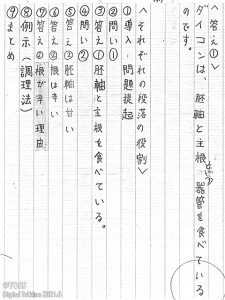 〈答え①〉
ダイコンは、胚軸と主根、器管を食べている
のです。
〈それぞれの段落の役割〉
①導入・問題提起
②問い①
③答え①胚軸と主根を食べている。
④問い②
⑤答え②胚軸は甘い
⑥答え②根は辛い
⑦答え②根が辛い理由
⑧例示(調理法)
⑨まとめ
©TOSS
Digital Talkline 2021.6